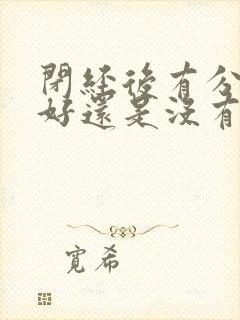 閉經後有分
好還是沒有
寬希